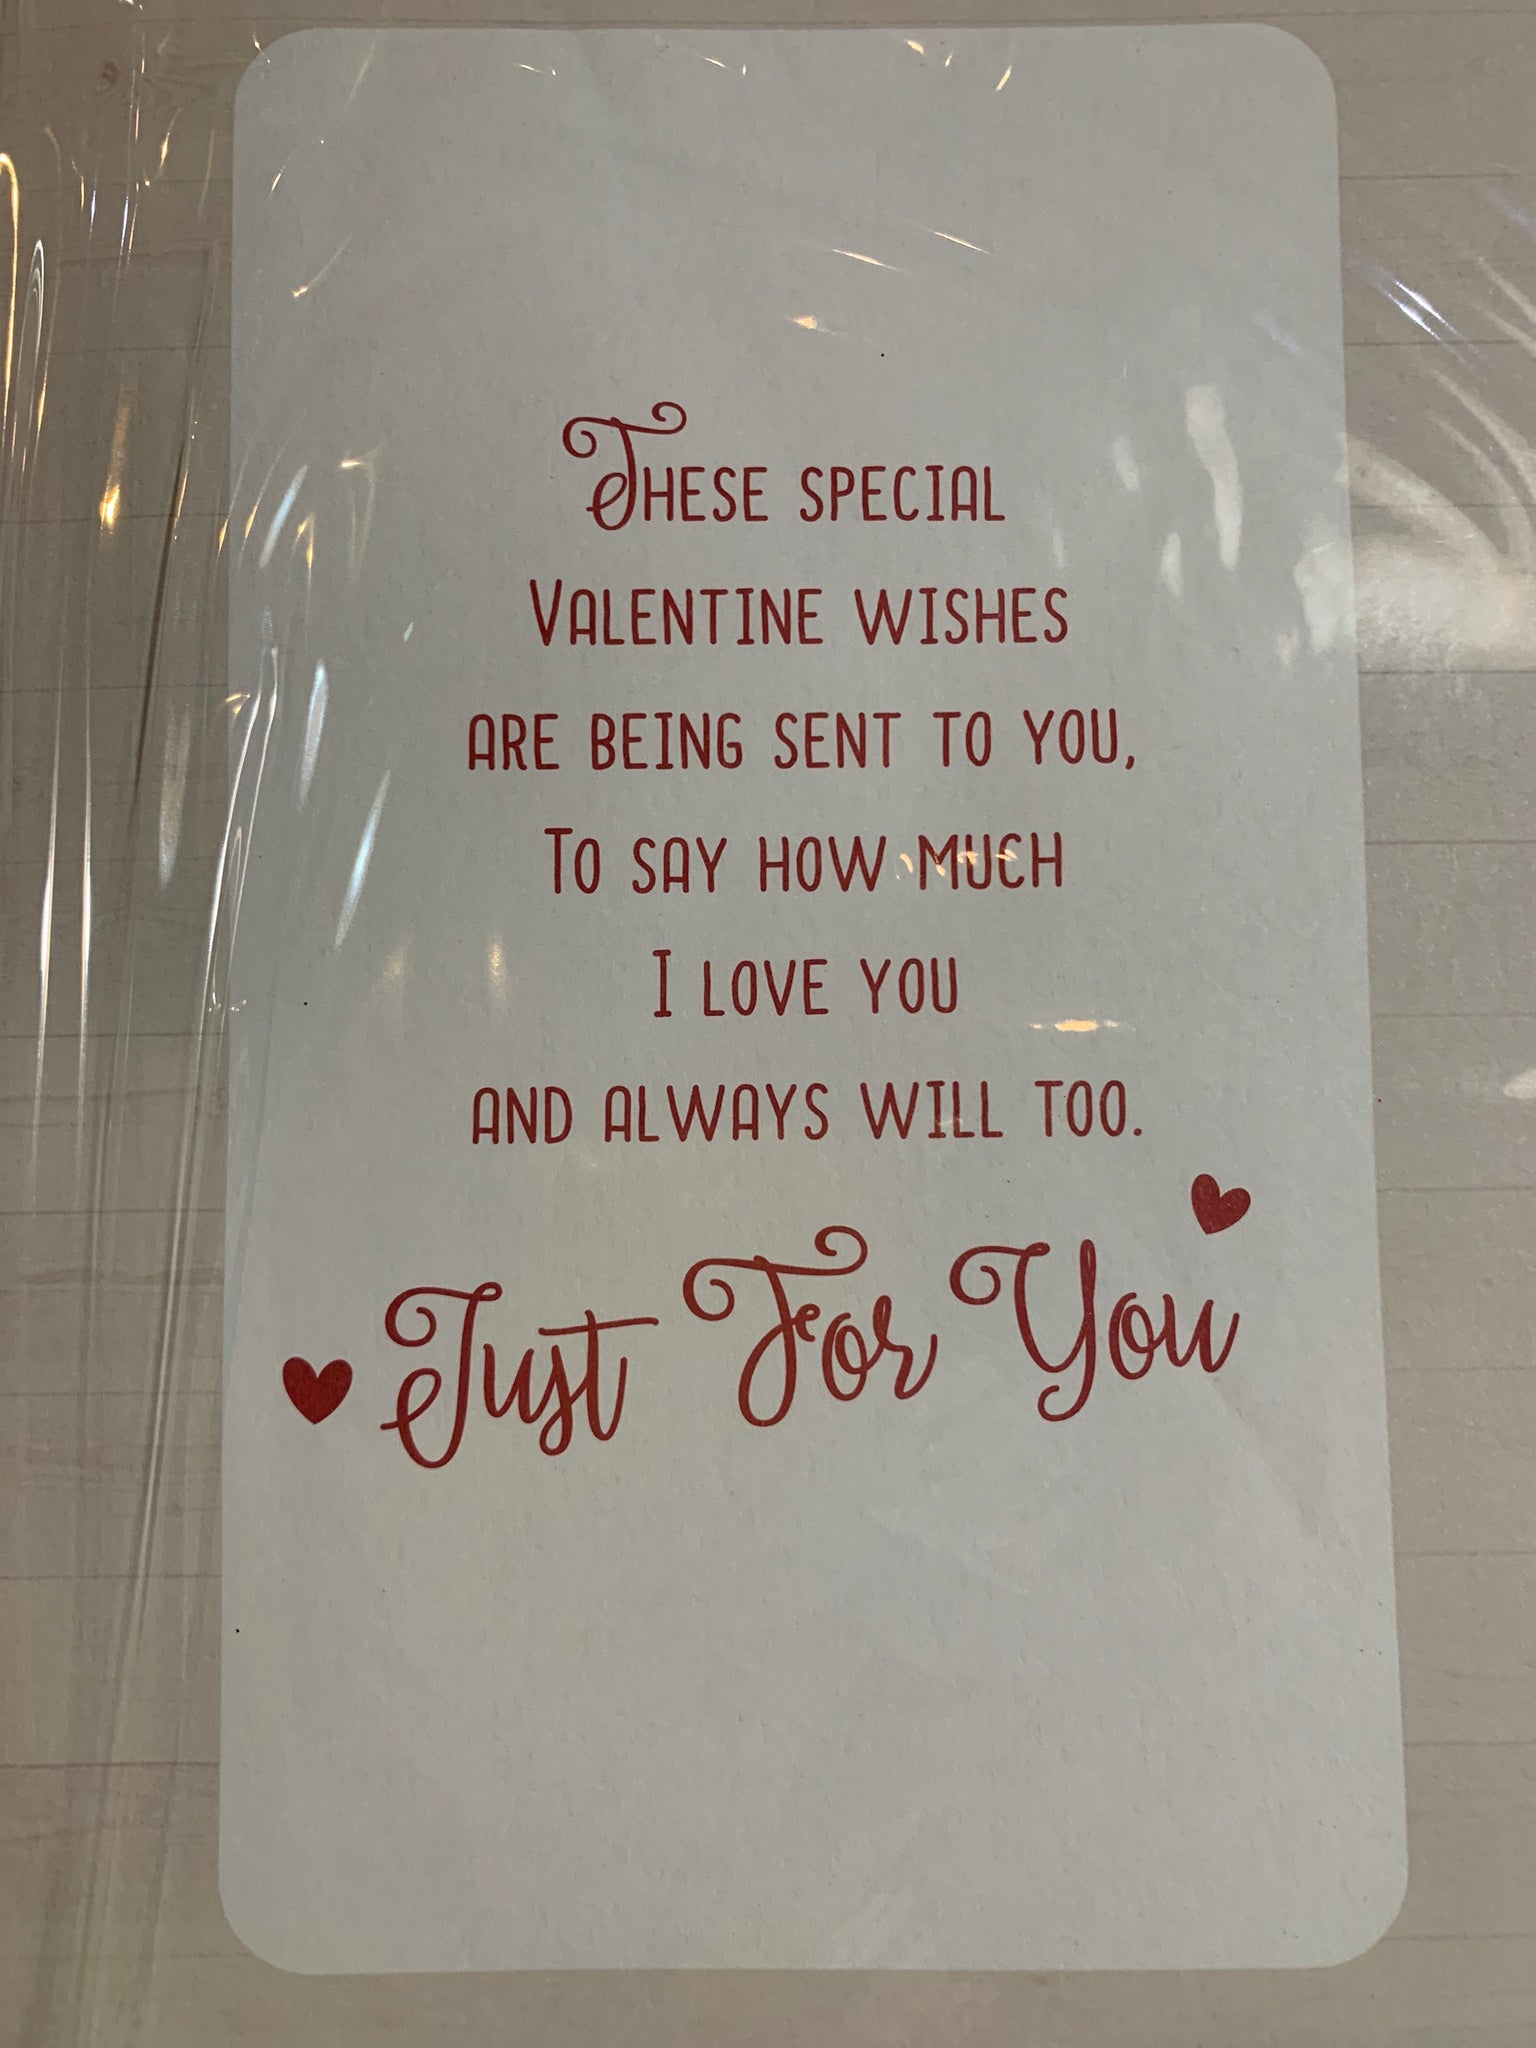 These special
Valentine wishes
are being sent to you,
To say how much
I love you
and always will too.
Just For You